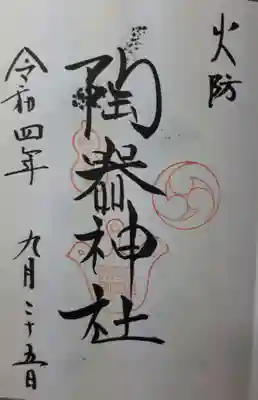 火防
陶器神社
令和四年 九月二十五日